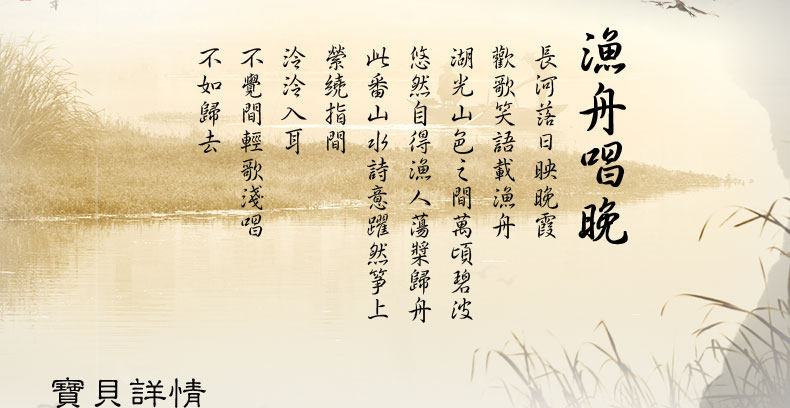 漁舟唱晚
長河落日映晚霞
歡歌笑語載漁舟
湖光山色之間萬頃碧波
悠然自得漁人蕩槳歸舟
此番山水詩意躍然箏上
縈繞指間
泠泠入耳
不覺間輕歌淺唱
不如歸去
寶貝詳情